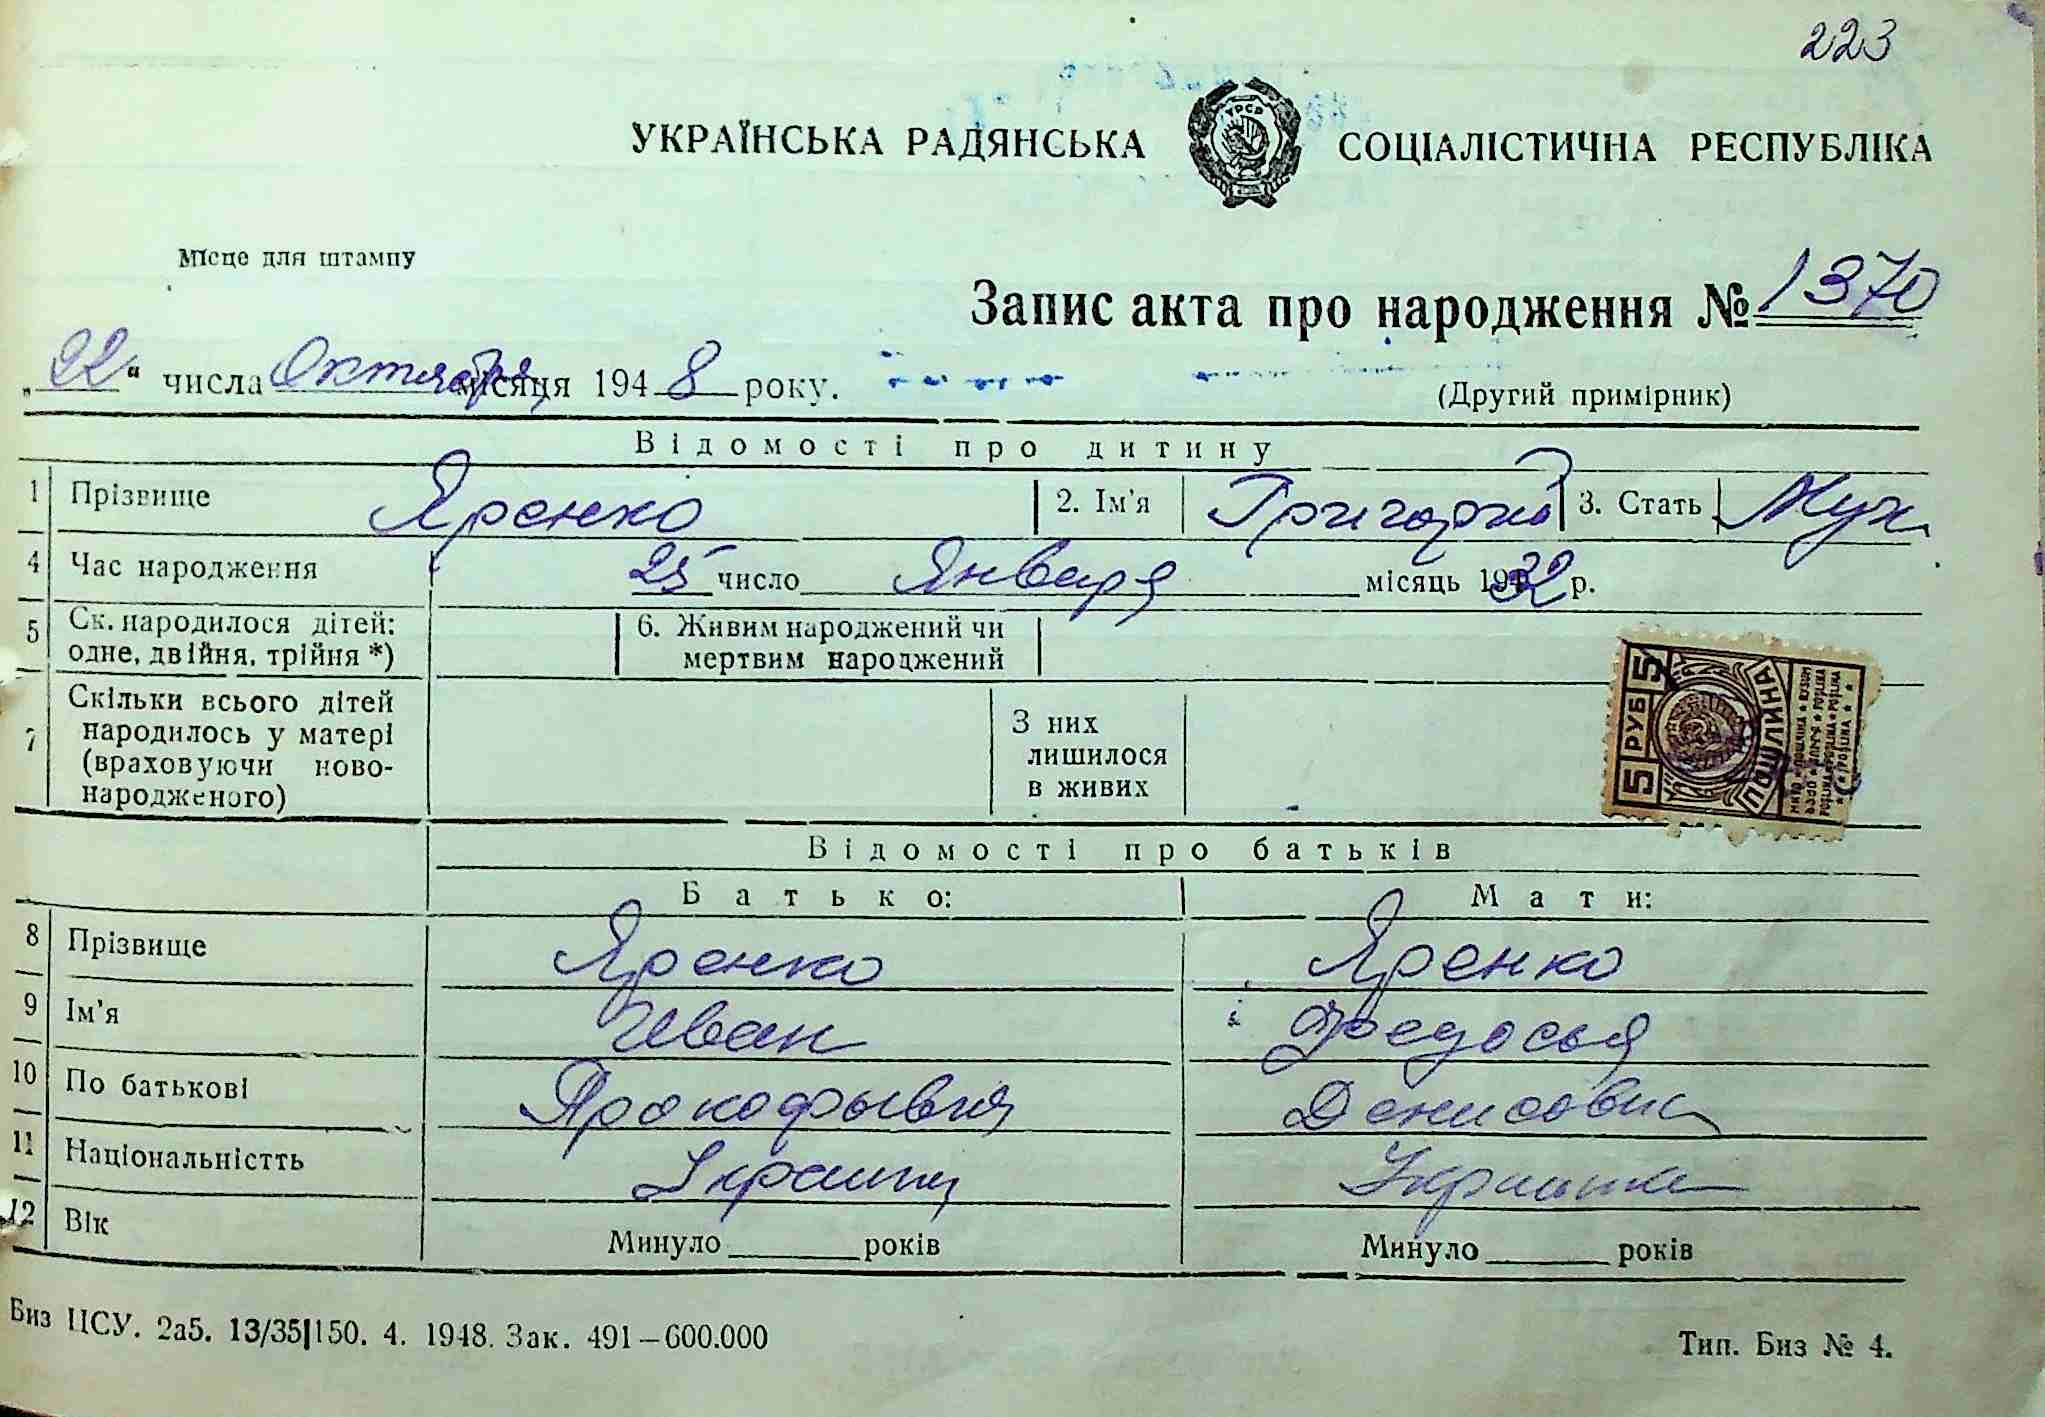 223
УКРАЇНСЬКА РАДЯНСЬКА СОЦІАЛІСТИЧНА РЕСПУБЛІКА
УРСР
Місце для штампу
Запис акта про народження № 1370
„22“ числа Октября місяця 1948 року.
(Другий примірник)
Відомості про дитину
1 Прізвище Яренко 2. Ім'я Григорий 3. Стать Муж
4 Час народження 25 число Января місяць 1932 р.
5 Ск. народилося дітей: одне, двійня, трійня *) 6. Живим народжений чи мертвим народжений
7 Скільки всього дітей народилось у матері (враховуючи новонародженого) З них лишилося в живих
5 РУБ 5
ПОШЛИНА
Відомості про батьків
Батько: Мати:
8 Прізвище Яренко Яренко
9 Ім'я Иван Федосья
10 По батькові Прокофьевич Денисовна
11 Національністть Украинец Украинка
12 Вік Минуло років Минуло років
Биз ЦСУ. 2а5. 13/35|150. 4. 1948. Зак. 491–600.000
Тип. Биз № 4.